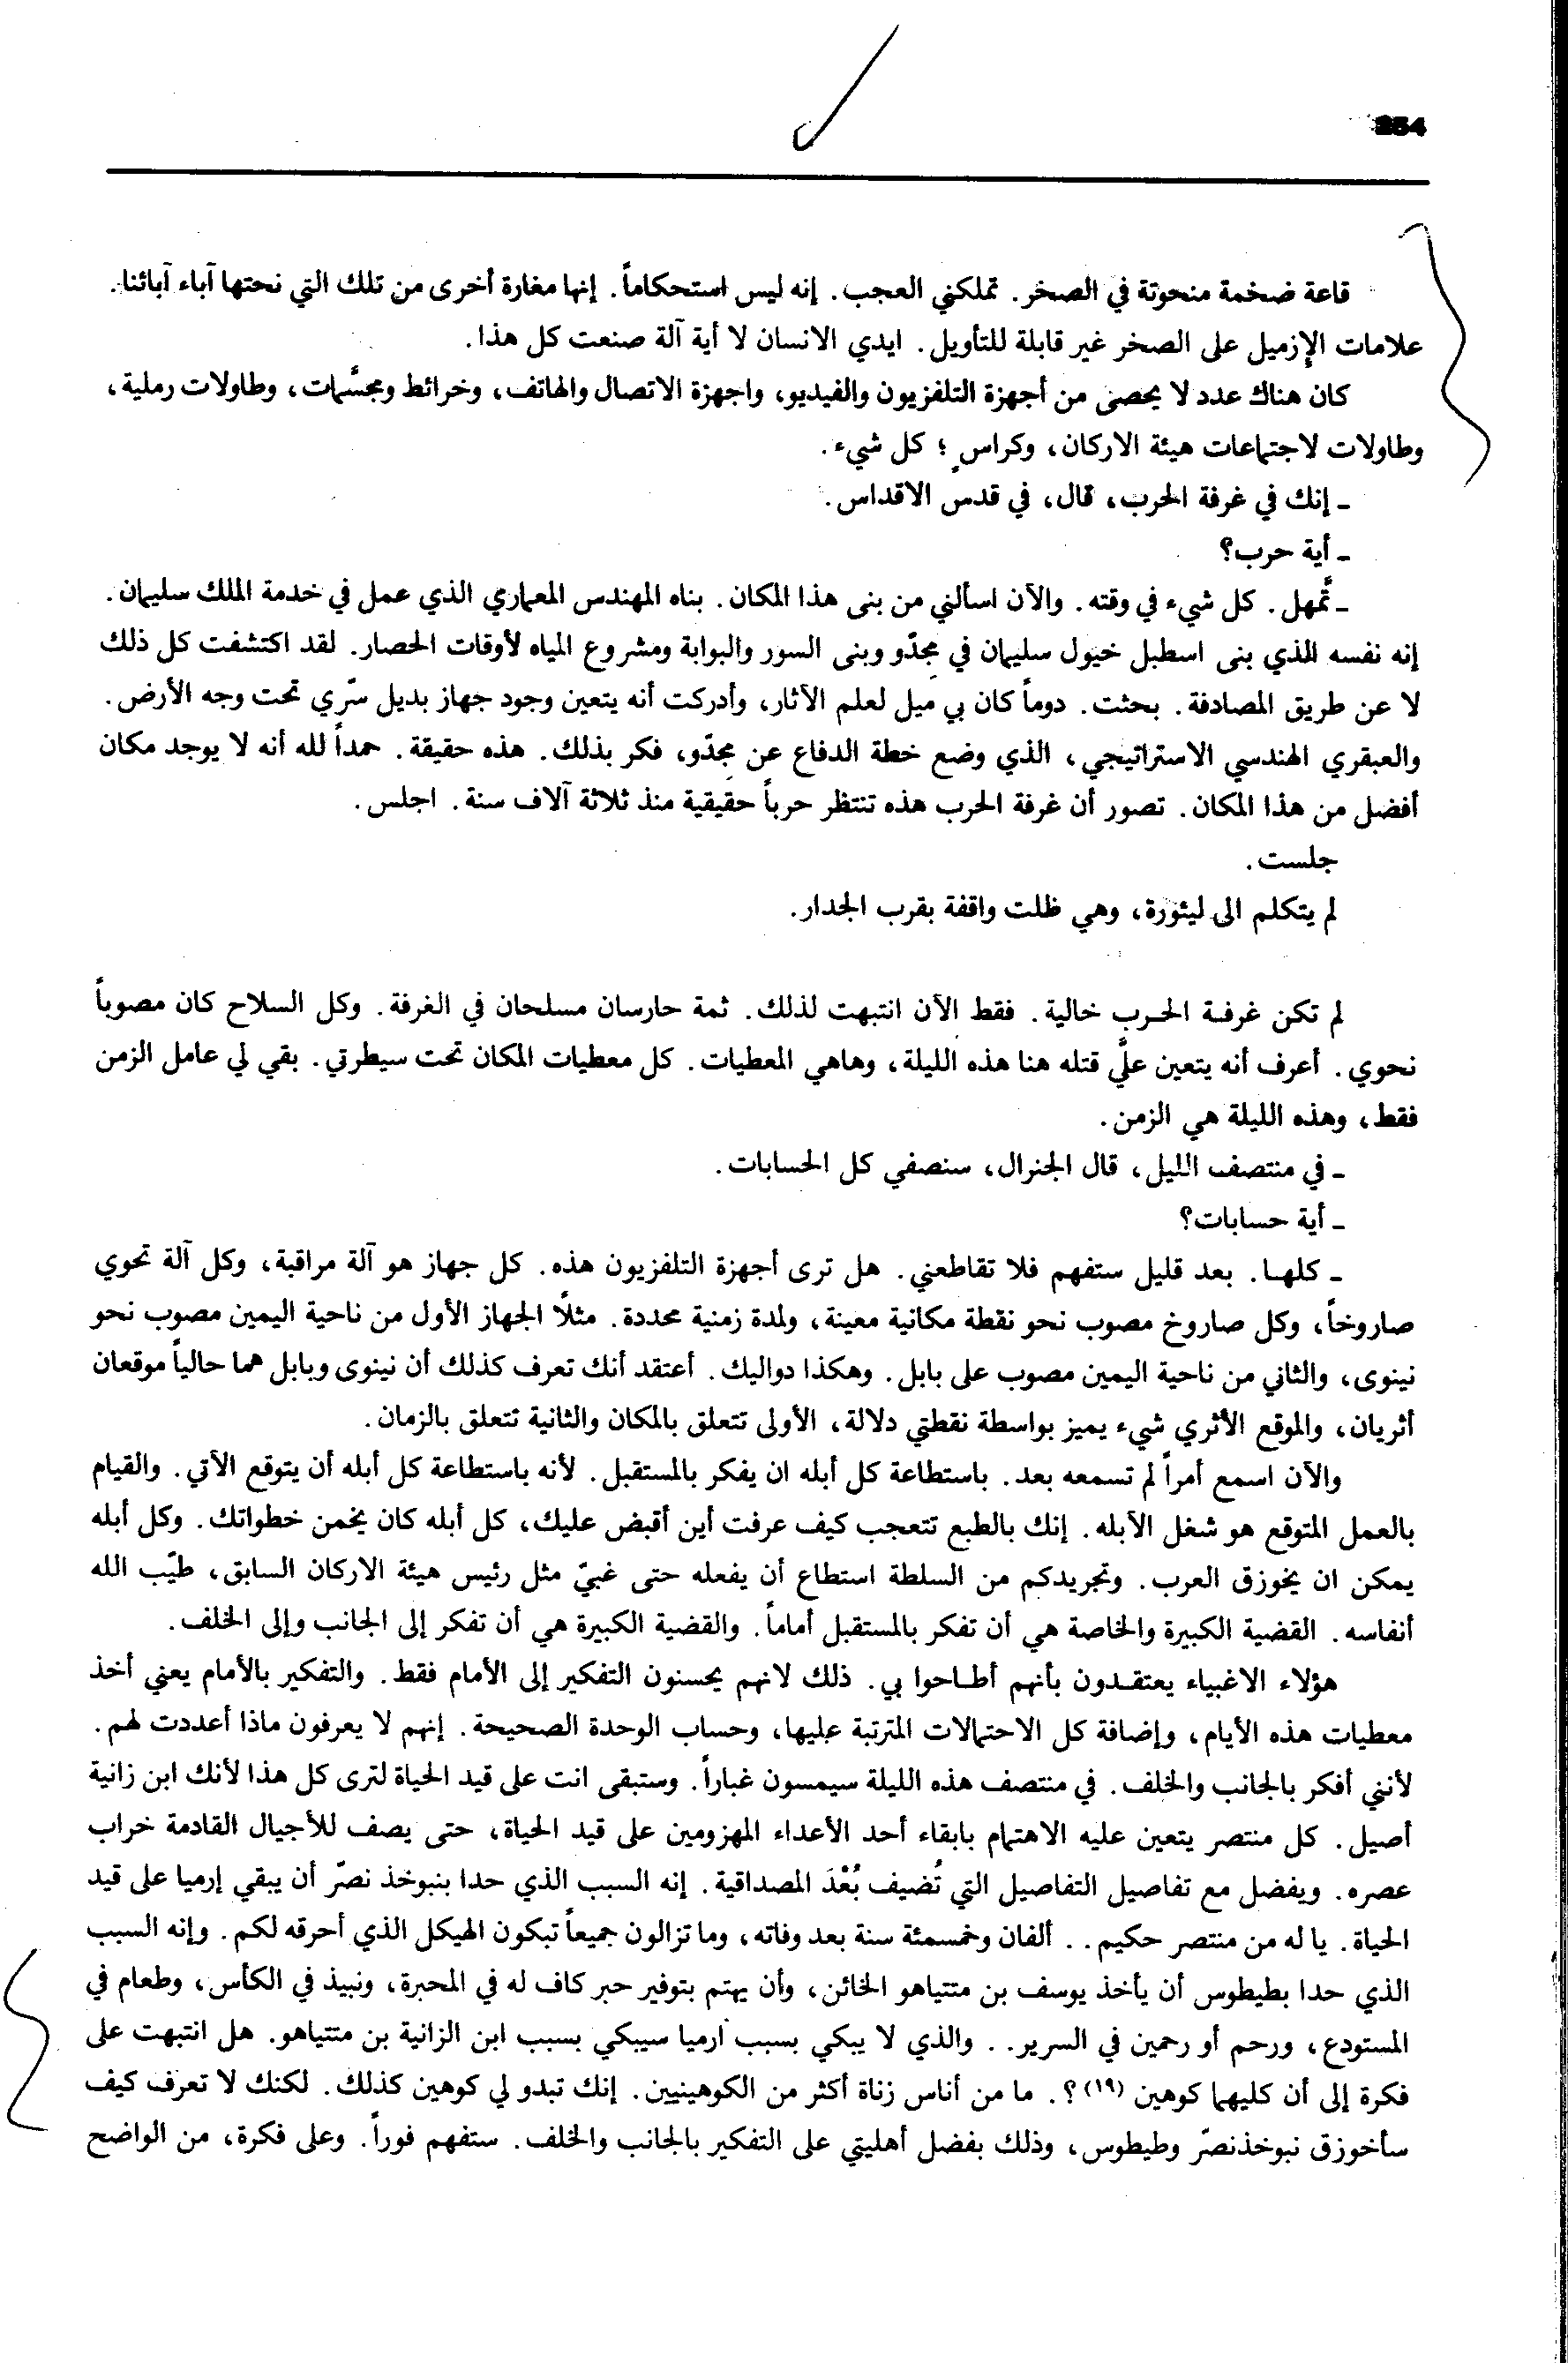 254
قاعة ضخمة منحوتة في الصخر. تملكني العجب. إنه ليس استحكاماً. إنها مغارة أخرى من تلك التي نحتها آباء آبائنا.
علامات الإزميل على الصخر غير قابلة للتأويل. ايدي الانسان لا أية آلة صنعت كل هذا.
كان هناك عدد لا يحصى من أجهزة التلفزيون والفيديو، واجهزة الاتصال والهاتف، وخرائط ومجسَّمات، وطاولات رملية،
وطاولات لاجتماعات هيئة الاركان، وكراسٍ؛ كل شيء.
ـ إنك في غرفة الحرب، قال، في قدس الاقداس.
ـ أية حرب؟
ـ تَّمهل. كل شيء في وقته. والآن اسألني من بنى هذا المكان. بناه المهندس المعماري الذي عمل في خدمة الملك سليمان.
إنه نفسه الذي بنى اسطبل خيول سليمان في مِجدّو وبنى السور والبوابة ومشروع المياه لأوقات الحصار. لقد اكتشفت كل ذلك
لا عن طريق المصادفة. بحثت. دوماً كان بي ميل لعلم الآثار، وأدركت أنه يتعين وجود جهاز بديل سّري تحت وجه الأرض.
والعبقري الهندسي الاستراتيجي، الذي وضع خطة الدفاع عن مِجدّو، فكر بذلك. هذه حقيقة. حمداً لله أنه لا يوجد مكان
أفضل من هذا المكان. تصور أن غرفة الحرب هذه تنتظر حرباً حقيقية منذ ثلاثة آلاف سنة. اجلس.
جلست.
لم يتكلم الى ليئورة، وهي ظلت واقفة بقرب الجدار.
لم تكن غرفة الحرب خالية. فقط الآن انتبهت لذلك. ثمة حارسان مسلحان في الغرفة. وكل السلاح كان مصوباً
نحوي. أعرف أنه يتعين عليَّ قتله هنا هذه الليلة، وهاهي المعطيات. كل معطيات المكان تحت سيطرتي. بقي لي عامل الزمن
فقط، وهذه الليلة هي الزمن.
ـ في منتصف الليل، قال الجنرال، سنصفي كل الحسابات.
ـ أية حسابات؟
ـ كلها. بعد قليل ستفهم فلا تقاطعني. هل ترى أجهزة التلفزيون هذه. كل جهاز هو آلة مراقبة، وكل آلة تحوي
صاروخاً، وكل صاروخ مصوب نحو نقطة مكانية معينة، ولمدة زمنية محددة. مثلاً الجهاز الأول من ناحية اليمين مصوب نحو
نينوى، والثاني من ناحية اليمين مصوب على بابل. وهكذا دواليك. أعتقد أنك تعرف كذلك أن نينوى وبابل هما حالياً موقعان
أثريان، والموقع الأثري شيء يميز بواسطة نقطتي دلالة، الأولى تتعلق بالمكان والثانية تتعلق بالزمان.
والآن اسمع أمراً لم تسمعه بعد. باستطاعة كل أبله ان يفكر بالمستقبل. لأنه باستطاعة كل أبله أن يتوقع الآتي. والقيام
بالعمل المتوقع هو شغل الآبله. إنك بالطبع تتعجب كيف عرفت أين أقبض عليك، كل أبله كان يخمن خطواتك. وكل أبله
يمكن ان يخوزق العرب. وتجريدكم من السلطة استطاع أن يفعله حتى غبيّ مثل رئيس هيئة الاركان السابق، طيّب الله
أنفاسه. القضية الكبيرة والخاصة هي أن تفكر بالمستقبل أماماً. والقضية الكبيرة هي أن تفكر إلى الجانب وإلى الخلف.
هؤلاء الاغبياء يعتقدون بأنهم أطاحوا بي. ذلك لانهم يحسنون التفكير إلى الأمام فقط. والتفكير بالأمام يعني أخذ
معطيات هذه الأيام، وإضافة كل الاحتمالات المترتبة عليها، وحساب الوحدة الصحيحة. إنهم لا يعرفون ماذا أعددت لهم.
لأنني أفكر بالجانب والخلف. في منتصف هذه الليلة سيمسون غباراً. وستبقى انت على قيد الحياة لترى كل هذا لأنك ابن زانية
أصيل. كل منتصر يتعين عليه الاهتمام بابقاء أحد الأعداء المهزومين على قيد الحياة، حتى يصف للأجيال القادمة خراب
عصره. ويفضل مع تفاصيل التفاصيل التي تُضيف بُعْدَ المصداقية. إنه السبب الذي حدا بنبوخذ نصّر أن يبقي إرميا على قيد
الحياة. يا له من منتصر حكيم. . ألفان وخمسمئة سنة بعد وفاته، وما تزالون جميعاً تبكون الهيكل الذي أحرقه لكم. وإنه السبب
الذي حدا بطيطوس أن يأخذ يوسف بن متتياهو الخائن، وأن يهتم بتوفير حبر كاف له في المحبرة، ونبيذ في الكأس، وطعام في
المستودع، ورحم أو رحمين في السرير. . والذي لا يبكي بسبب ارميا سيبكي بسبب ابن الزانية بن متتياهو. هل انتبهت على
فكرة إلى أن كليهما كوهين (١٩)؟. ما من أناس زناة أكثر من الكوهينيين. إنك تبدو لي كوهين كذلك. لكنك لا تعرف كيف
سأخوزق نبوخذنصّر وطيطوس، وذلك بفضل أهليتي على التفكير بالجانب والخلف. ستفهم فوراً. وعلى فكرة، من الواضح